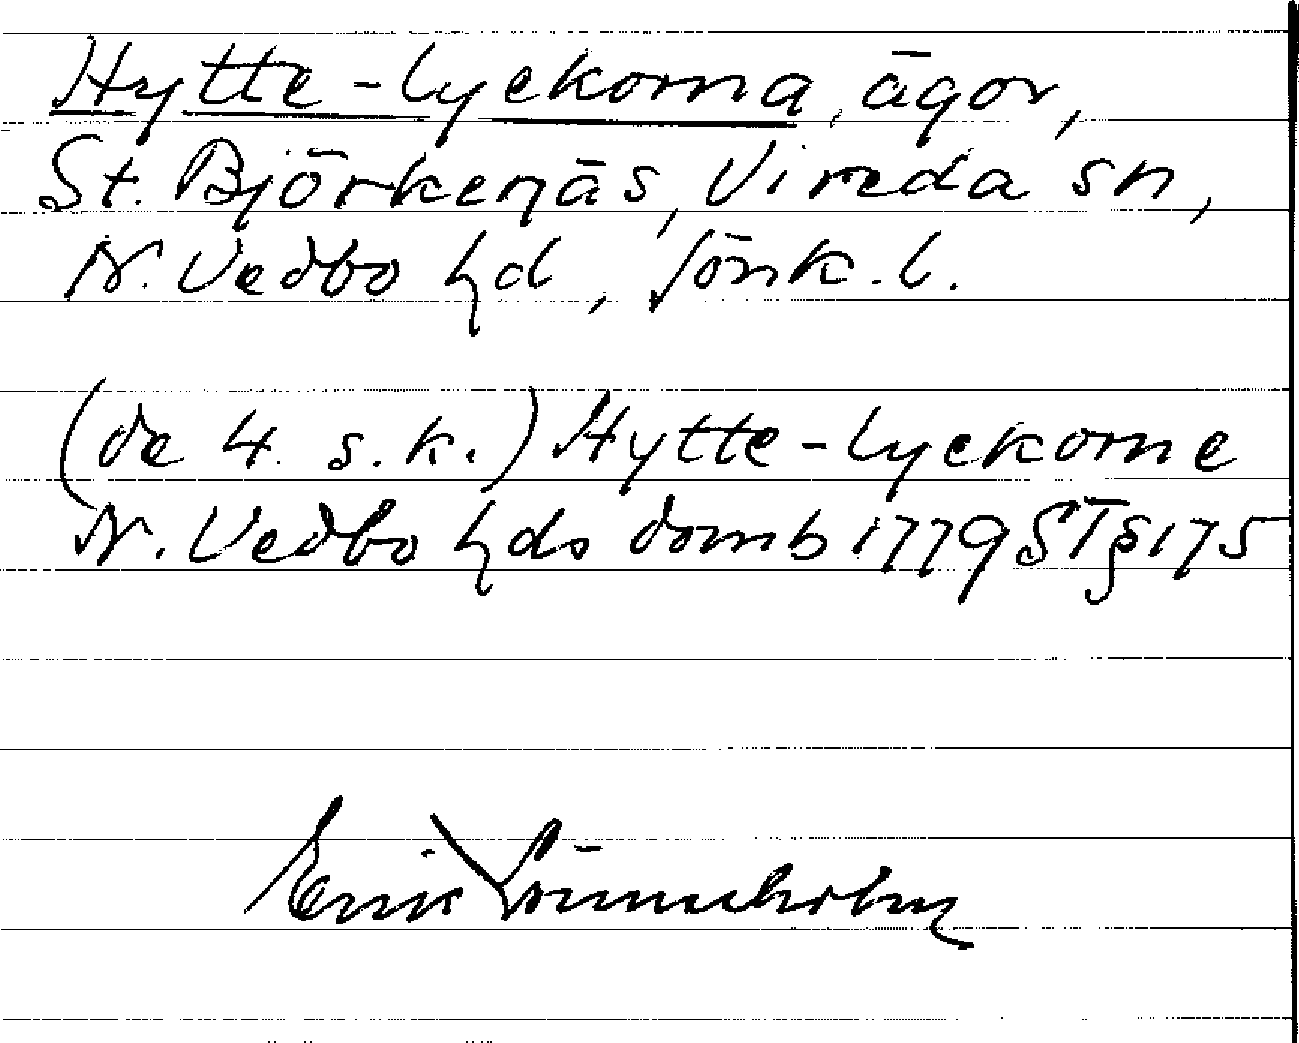 Hytte-lyckorna, ägor,
St. Björkenäs, Vireda sn,
N. Vedbo hd, Jönk. l.
(de 4 s.k.) Hytte-lyckorne
N. Vedbo hds domb 1779 ST § 175
Erik Lönneholm